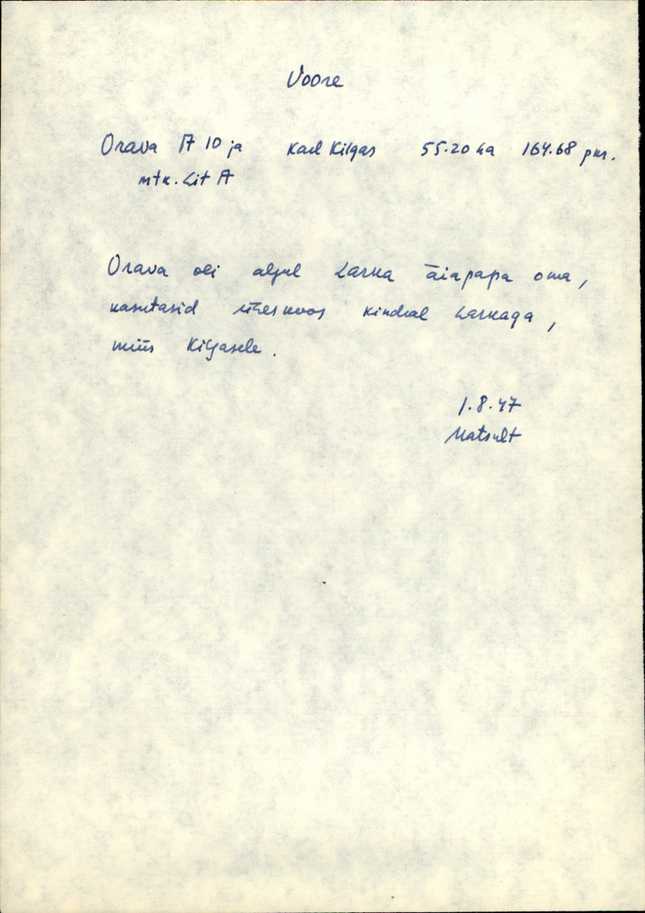 Voore
Orava A 10 ja Karl Kilgas 55.20 ha 164.68 pkr.
mtk. Lit A
Orava oli algul Larka äiapapa oma,
kasutasid üheskoos kindral Larkaga,
müüs Kilgasele.
1.8.47
Matsult